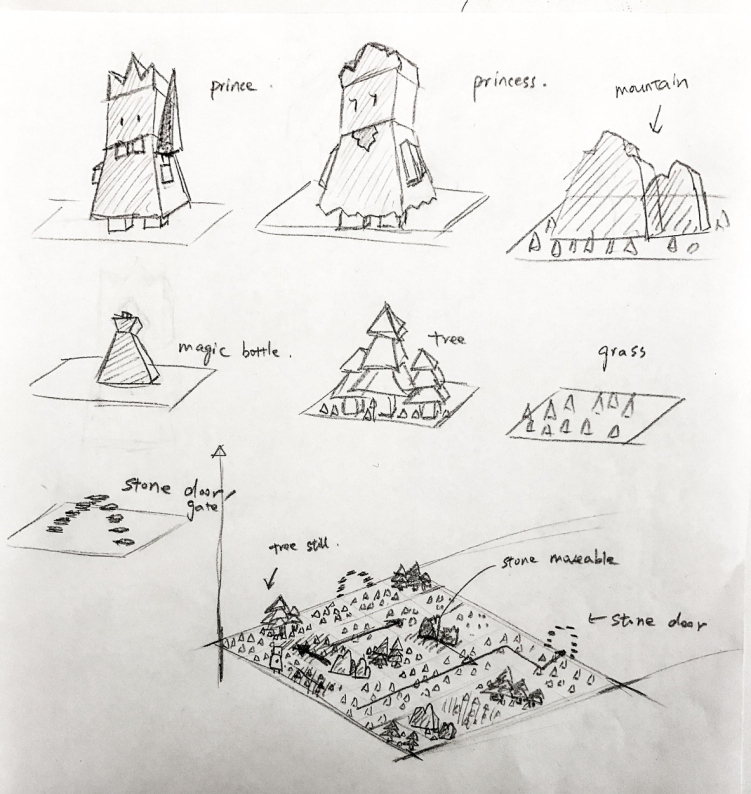 prince.
princess.
mountain
magic bottle.
tree
grass
stone door
gate
tree still.
stone moveable
← stone door